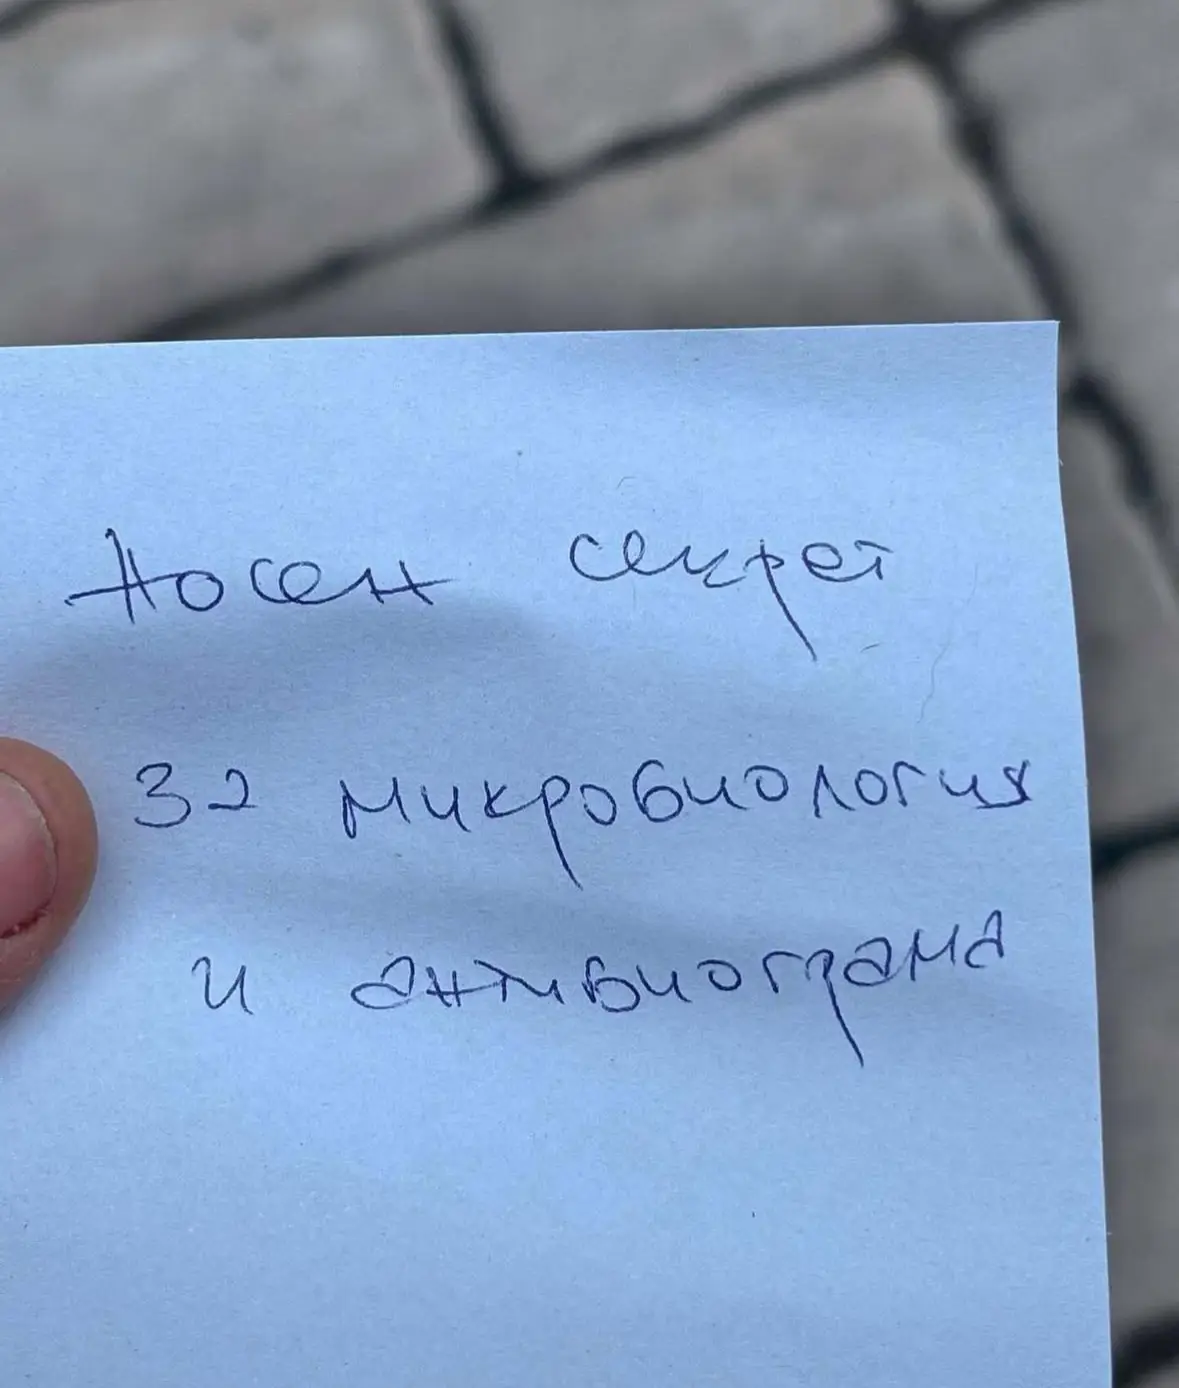 Носен секрет
за микробиология
и антибиограма